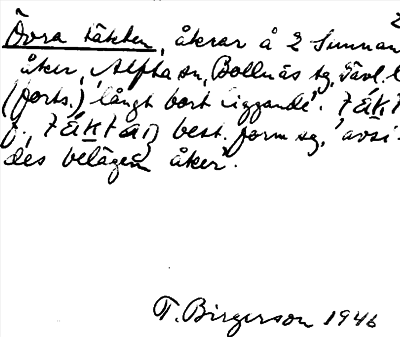 2
Övra täkten, åkrar å 2 Sunnan
åker, Alfta sn, Bollnäs tg, Gävl. l
(forts.) 'långt bort liggande'. täkt
f., täktän best. form sg, 'avsi-
des belägen åker'.
T. Birgerson 1946